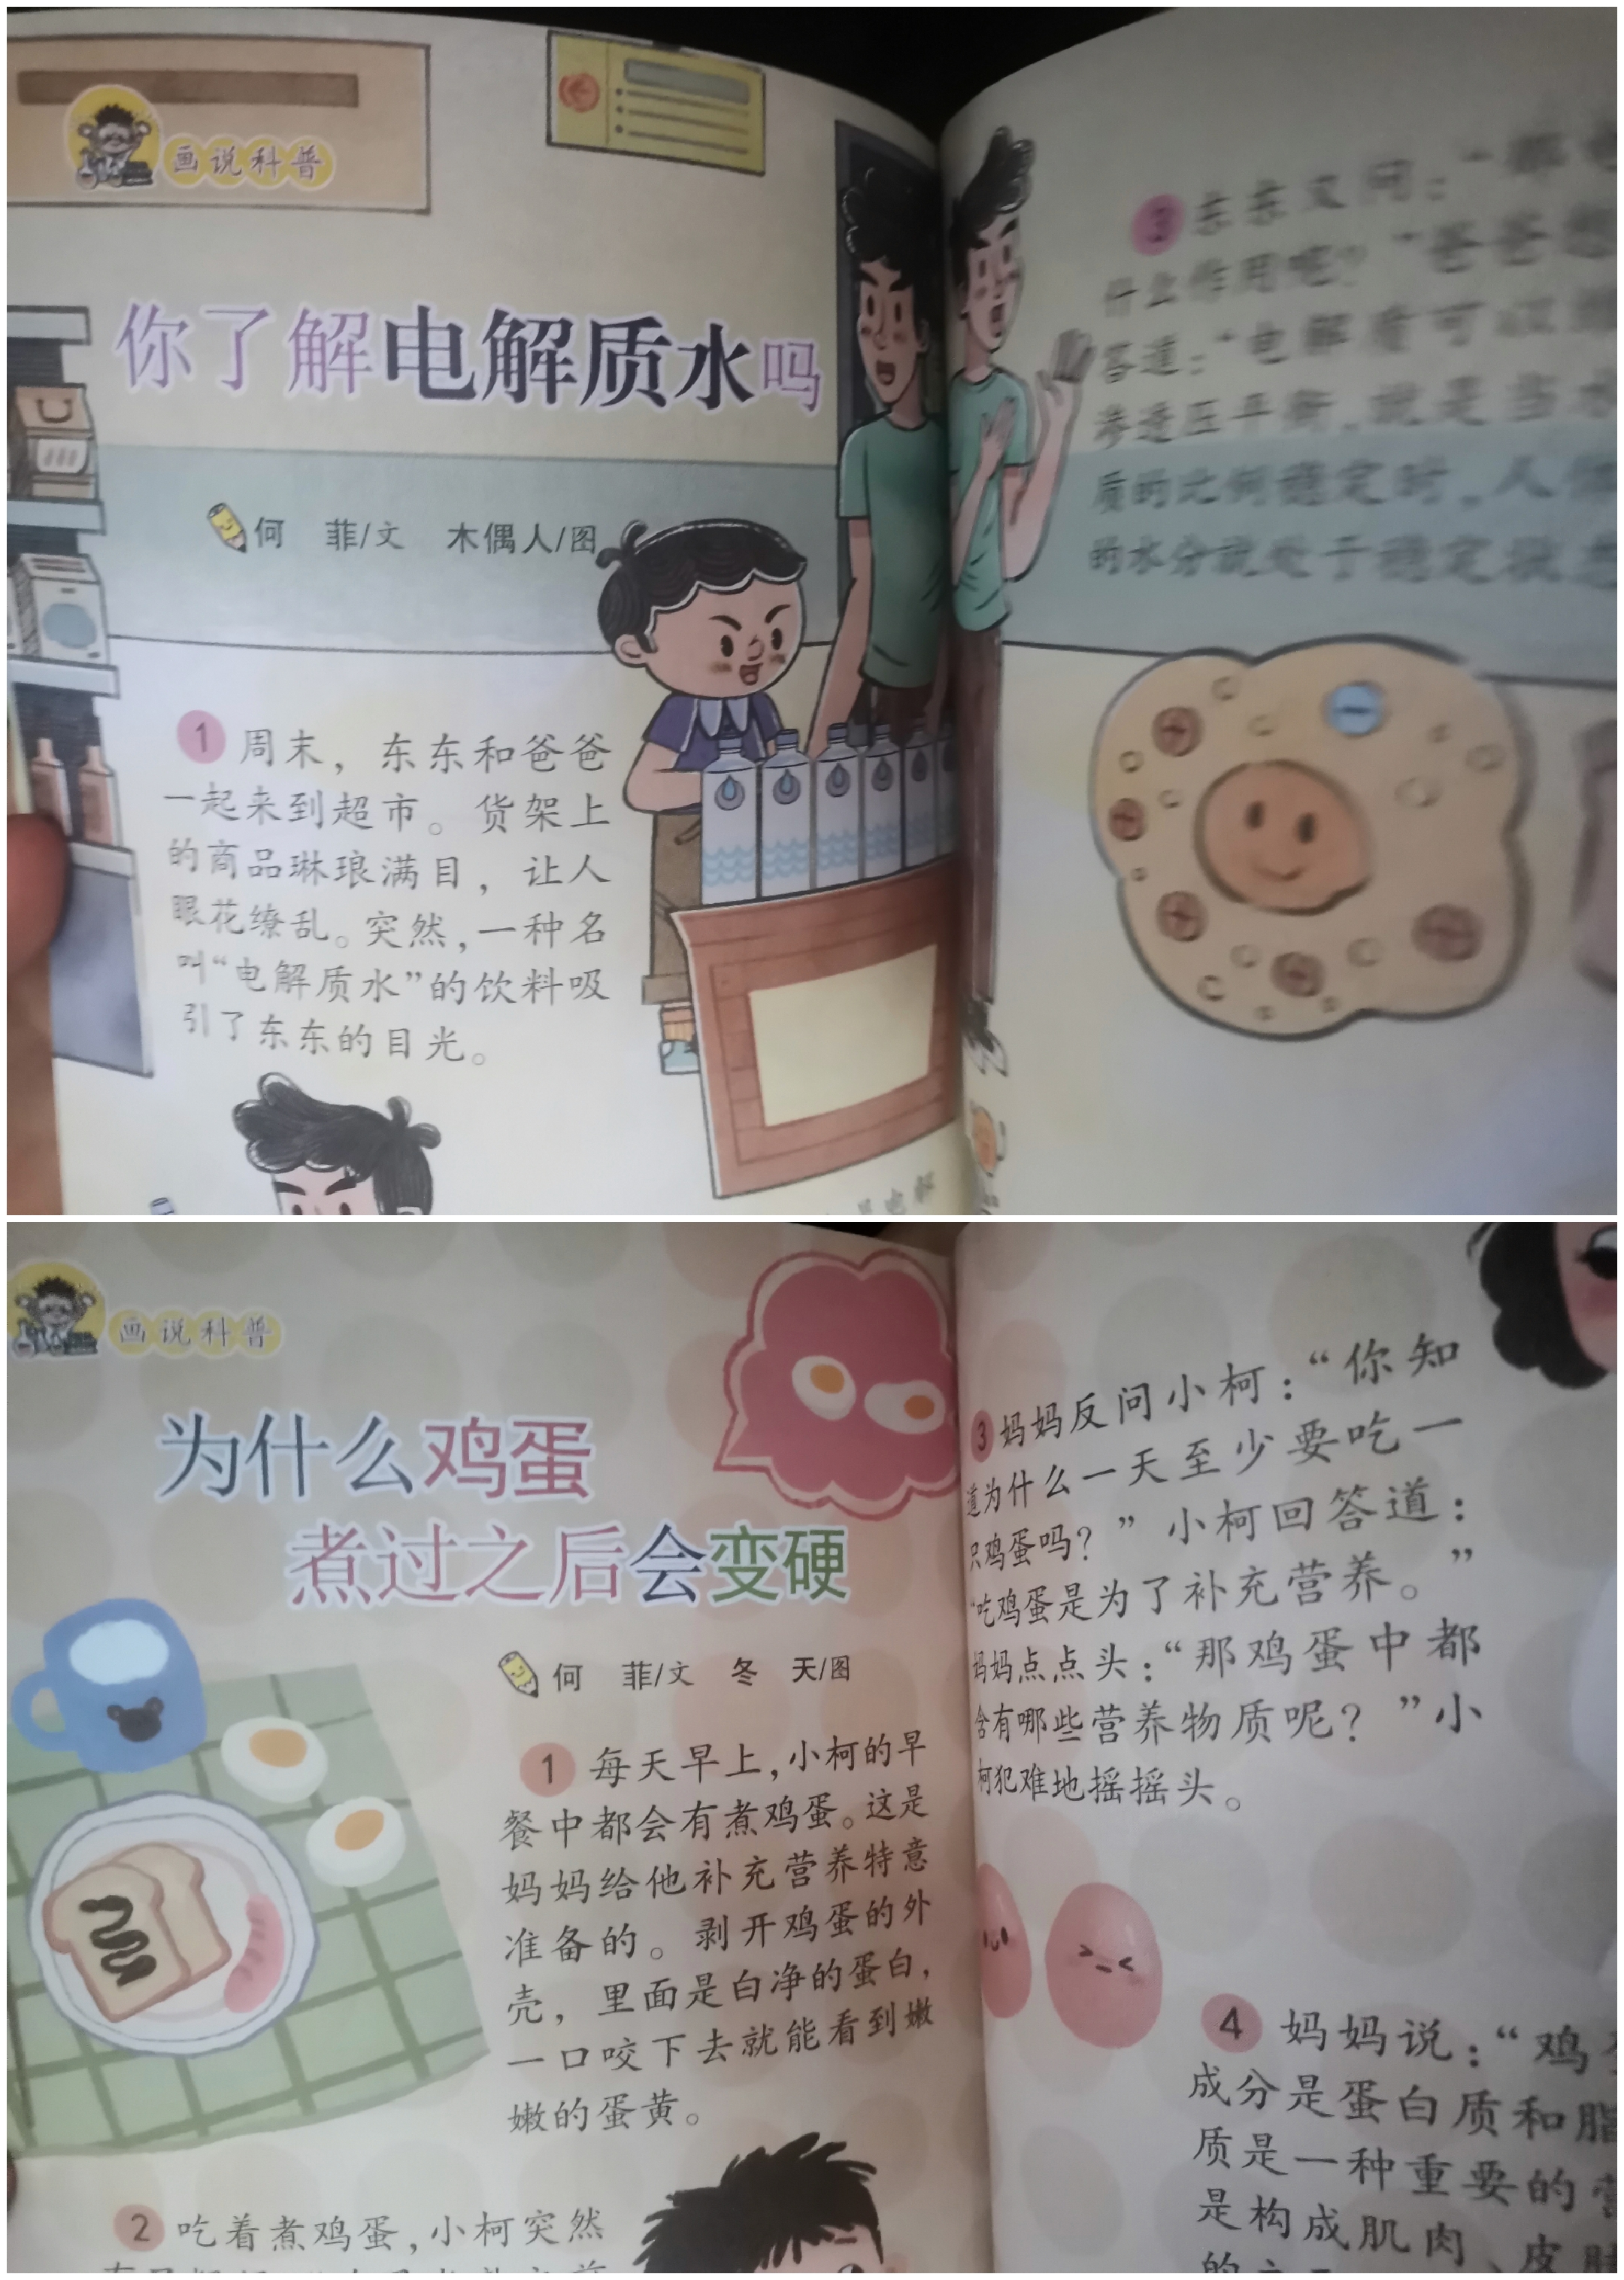 画说科普
你了解电解质水吗
何 菲/文 木偶人/图
1 周末，东东和爸爸
一起来到超市。货架上
的商品琳琅满目，让人
眼花缭乱。突然，一种名
叫“电解质水”的饮料吸
引了东东的目光。
是电解
3 东东又问：“那
什么作用呢？”爸爸
答道：“电解质可以
渗透压平衡，就是当水
质的比例稳定时，人体
的水分就处于稳定状态
画说科普
为什么鸡蛋
煮过之后会变硬
何 菲/文 冬 天/图
1 每天早上，小柯的早
餐中都会有煮鸡蛋。这是
妈妈给他补充营养特意
准备的。剥开鸡蛋的外
壳，里面是白净的蛋白，
一口咬下去就能看到嫩
嫩的蛋黄。
2 吃着煮鸡蛋，小柯突然
3 妈妈反问小柯：“你知
道为什么一天至少要吃一
只鸡蛋吗？”小柯回答道：
“吃鸡蛋是为了补充营养。”
妈妈点点头：“那鸡蛋中都
含有哪些营养物质呢？”小
柯犯难地摇摇头。
4 妈妈说：“鸡
成分是蛋白质和脂
质是一种重要的营
是构成肌肉、皮肤